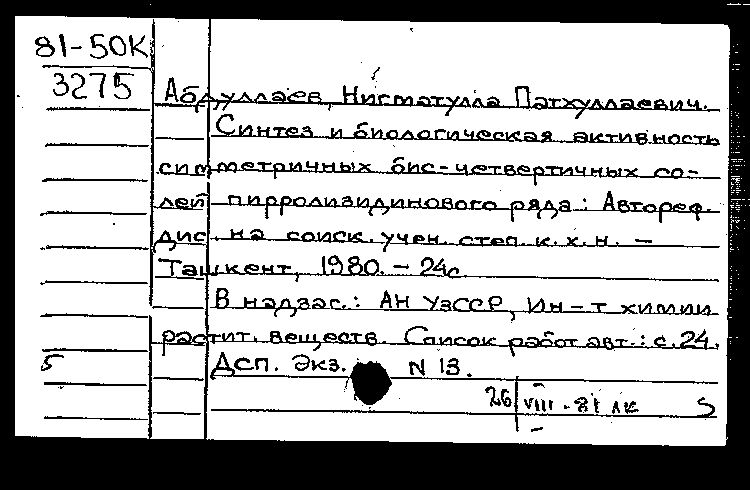 81-50К
3275
Абдуллаев, Нигматулла Патхуллаевич.
Синтез и биологическая активность
симметричных бис-четвертичных со-
лей пирролизидинового ряда: Автореф.
дис. на соиск. учен. степ. к. х. н. -
Ташкент, 1980. - 24с.
В надзаг.: АН УзССР, Ин-т химии
растит. веществ. Список работ авт.: с. 24.
5
Дсп. Экз. N 13.
26 VIII - 81 ЛК S